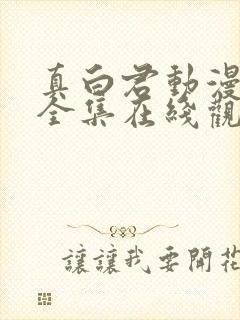 真白君動漫
全集在綫觀
讓讓我要開花